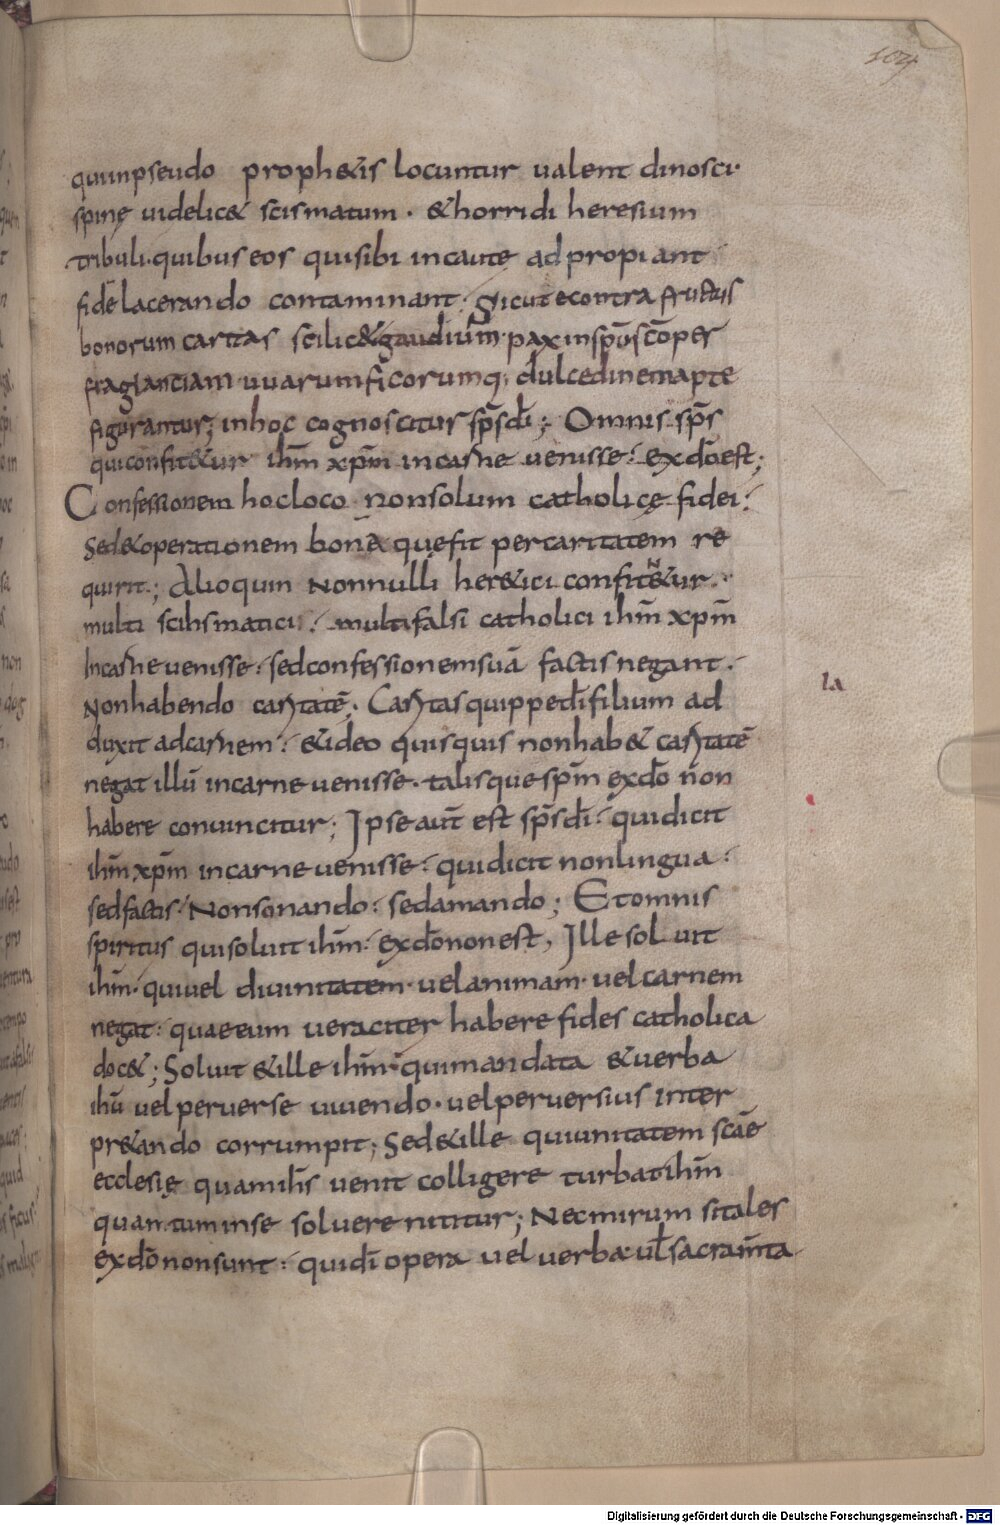 104
qui in pseudo proph&is locuntur ualent dinosci·
spinę uidelic& scismatum · & horridi heresium
tribuli· quibus eos qui sibi incaute adpropiant
fidē lacerando contaminant· Sicut econtra fructus
bonorum caritas scilic& gaudium· pax in sp̄u sc̄o per
fraglanciam uuarum ficorumq; dulcedinem apte
figurantur; in hoc cognoscitur sp̄s dī; Omnis sp̄s
qui confit&ur ih̄m xp̄m in carne uenisse· ex dō est;
Confessionem hoc loco non solum catholicę fidei·
sed & operationem bonā quę fit per caritatem re
quirit; Alioquin nonnulli her&ici confitN&ur·
multi scihsmatici· multi falsi catholici ih̄m xp̄m
In carne uenisse· sed confessionem suā factis negant·
Non habendo caritatē; Caritas quippe dī filium ad
duxit ad carnem· & ideo quisquis non hab& caritatē
negat illū in carne uenisse· talisque sp̄m ex dō non
habere conuincitur; Ipse aut̄ est sp̄s dī· qui dicit
ih̄m xp̄m in carne uenisse· qui dicit non lingua·
sed factis· Non sonando· sed amando; Et omnis
spiritus qui soluit ih̄m· ex dō non est, Ille soluit
ih̄m· qui uel diuinitatem· uel animam· uel carnem
negat· quae eum ueraciter habere fides catholica
doc&; Soluit & ille ih̄m· qui mandata & uerba
ih̄ū uel peruerse uiuendo· uel peruersius inter
pr&ando corrumpit; Sed & ille qui unitatem scāe
ecclesię quam ih̄s uenit colligere turbat ih̄m
quantum in se soluere nititur; Nec mirum si tales
ex dō non sunt· qui dī opera uel uerba ul̄ sacram̄ta
la
Digitalisierung gefördert durch die Deutsche Forschungsgemeinschaft - DFG